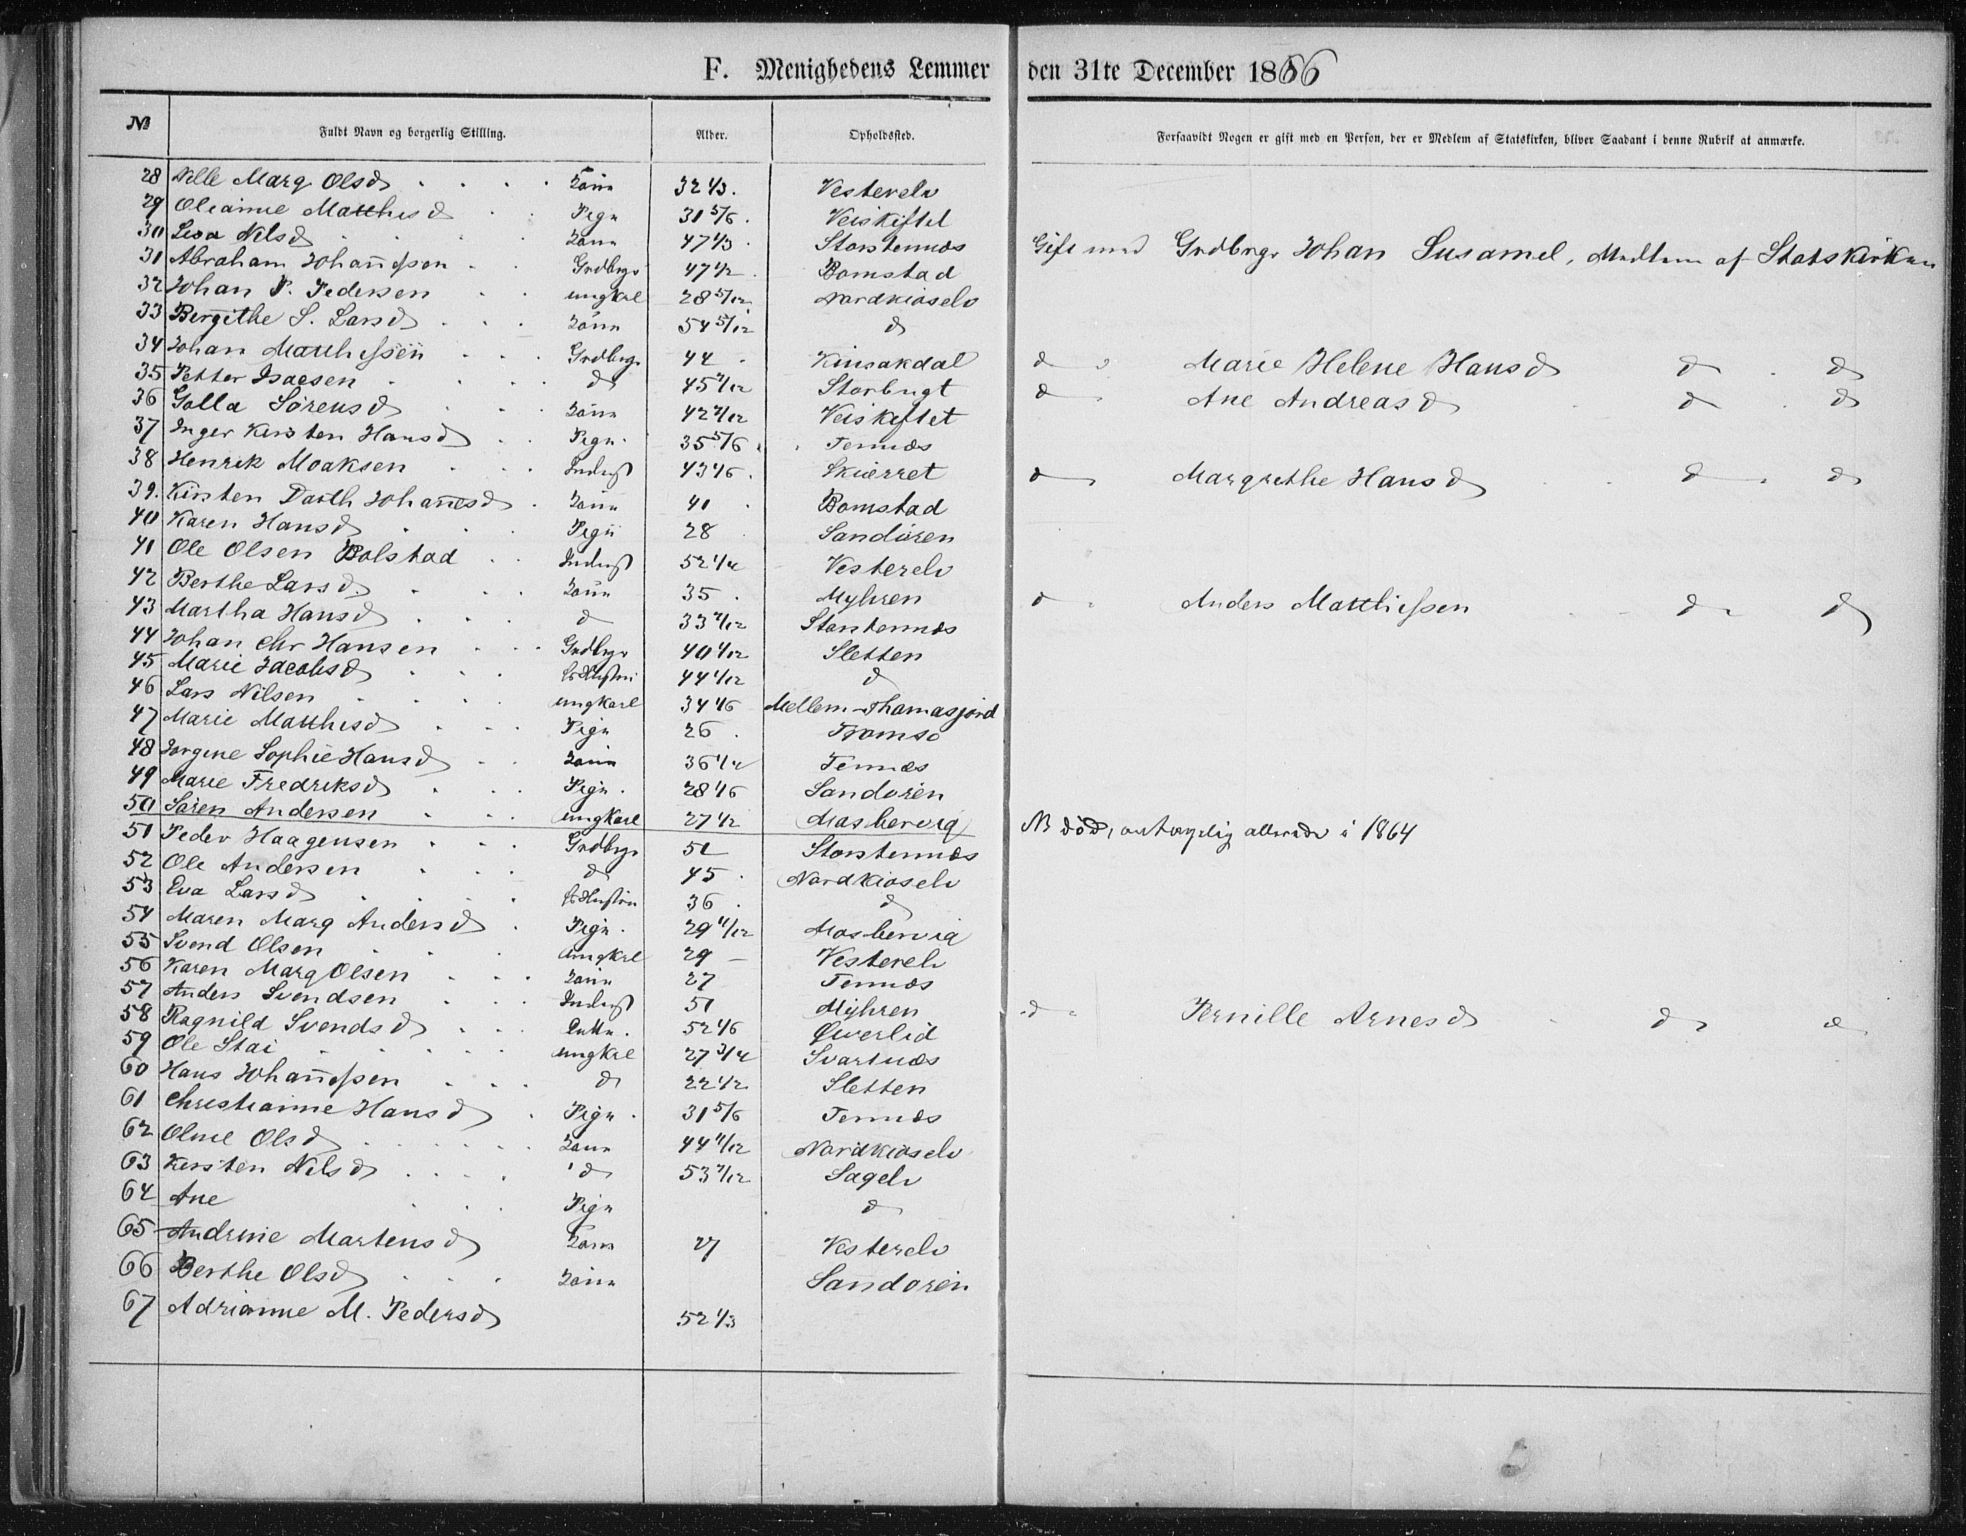 F. Menighedens Lemmer den 31te December 1866
№ Fuldt Navn og borgerlig Stilling. Alder. Opholdssted. Forsaavidt Nogen er gift med en Person, der er Medlem af Statskirken, bliver Saadant i denne Rubrik at anmærke.
28 Nille Marg Olsd Kone 32 1/3 Vesterelv
29 Olianne Matthisd Pige 31 5/6 Veiskiftet
30 Lisa Nilsd Kone 47 1/3 Storstennæs Gift med Grdbrgr Johan Susamel, Medlem af Statskirken
31 Abraham Johannessen Grdbrgr 47 1/2 Bomstad
32 Johan P. Pedersen ungkarl 28 5/12 Nordkioselv
33 Bergithe S. Larsd Kone 54 5/12 d
34 Johan Matthissen Grdbrgr 44 Kinsakdal d Marie Helene Hansd d d
35 Petter Isacsen d 45 7/12 Storbugt d Ane Andreasd d d
36 Golla Sørensd Kone 42 7/12 Veiskiftet
37 Inger Kirsten Hansd Pige 35 5/6 Tennæs
38 Henrik Moaksen Inderst 43 1/6 Skierret d Margrethe Hansd d d
39. Kirsten Dorth Johannesd Kone 41 Bomstad
40 Karen Hansd Pige 28 Sandøren
41 Ole Olsen Bolstad Inderst 52 1/4 Vesterelv
42 Berthe Larsd Kone 35 Myhren d Anders Matthiessen d d
43 Martha Hansd d 33 7/12 Storstennæs
44 Johan Chr Hansen Grdbrgr 40 1/12 Sletten
45 Marie Jacobsd Hustru 44 1/12 d
46 Lars Nilsen ungkarl 34 1/6 Mellem-Thomasjord
47 Marie Matthisd Pige 26 Tromsø
48 Jorgine Sophie Hansd Kone 36 1/4 Tennæs
49 Marie Fredriksd Pige 28 1/6 Sandøren
50 Søren Andersen ungkarl 27 1/2 Masbervig NB død, antagelig allerede i 1864
51 Peder Haagensen Grdbrgr 51 Storstennæs
52 Ole Andersen d 45 Nordkioselv
53 Eva Larsd Hustru 36 d
54 Maren Marg Andersd Pige 29 11/12 Masbervig
55 Svend Olsen ungkrl 29 Vesterelv
56 Karen Marg Olsen Kone 27 Tennæs
57 Anders Svendsen Inderst 51 Myhren d Pernille Arnesd d d
58 Ragnild Svendsd Enke 52 1/6 Øverlid
59 Ole Stai ungkrl 27 3/4 Svartnæs
60 Hans Johannessen d 22 1/2 Sletten
61 Christianne Hansd Pige 31 5/6 Tennæs
62 Oline Olsd Kone 44 11/12 Nordkioselv
63 Kirsten Nilsd d 53 7/12 Sagelv
64 Ane Pige d
65 Andrine Martensd Kone 27 Vesterelv
66 Berthe Olsd Kone Sandøren
67 Adrianne M. Pedersd 52 1/3